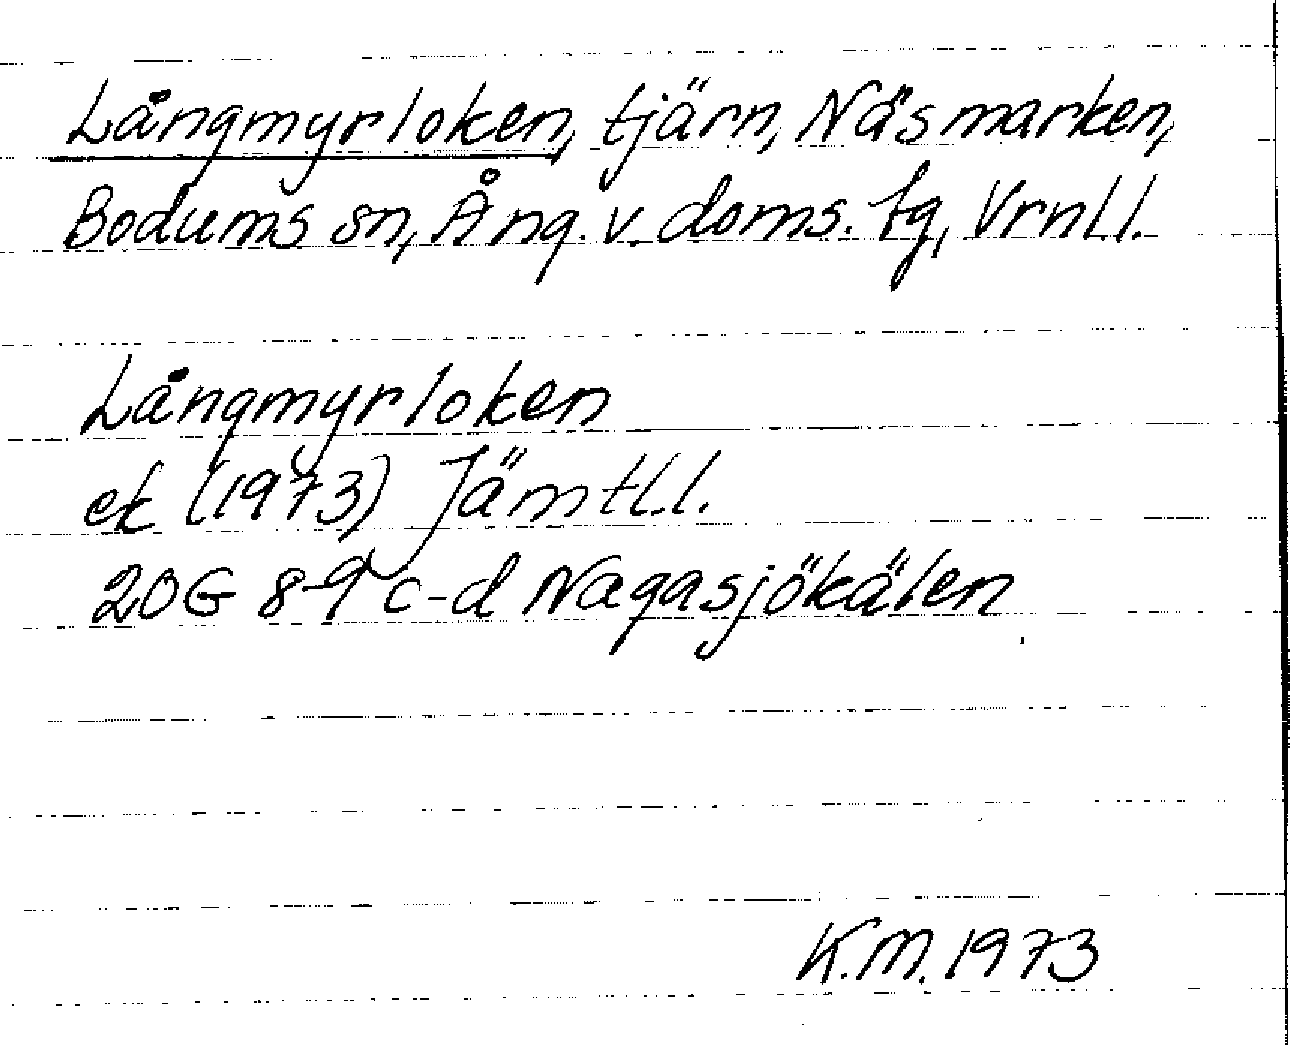 Långmyrloken, tjärn, Näsmarken,
Bodums sn, Ång. v. doms. tg, Vrnl.l.
Långmyrloken
ek (1973) Jämtl.l.
20G 8-9 c-d Nagasjökälen
K.M. 1973